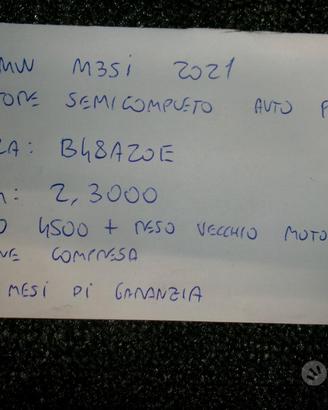 MW M35i 2021
TORE SEMICOMPLETO AUTO P
CA: B48A20E
: 2,3000
O 4500 + RESO VECCHIO MOTO
NE COMPRESA
MESI DI GARANZIA